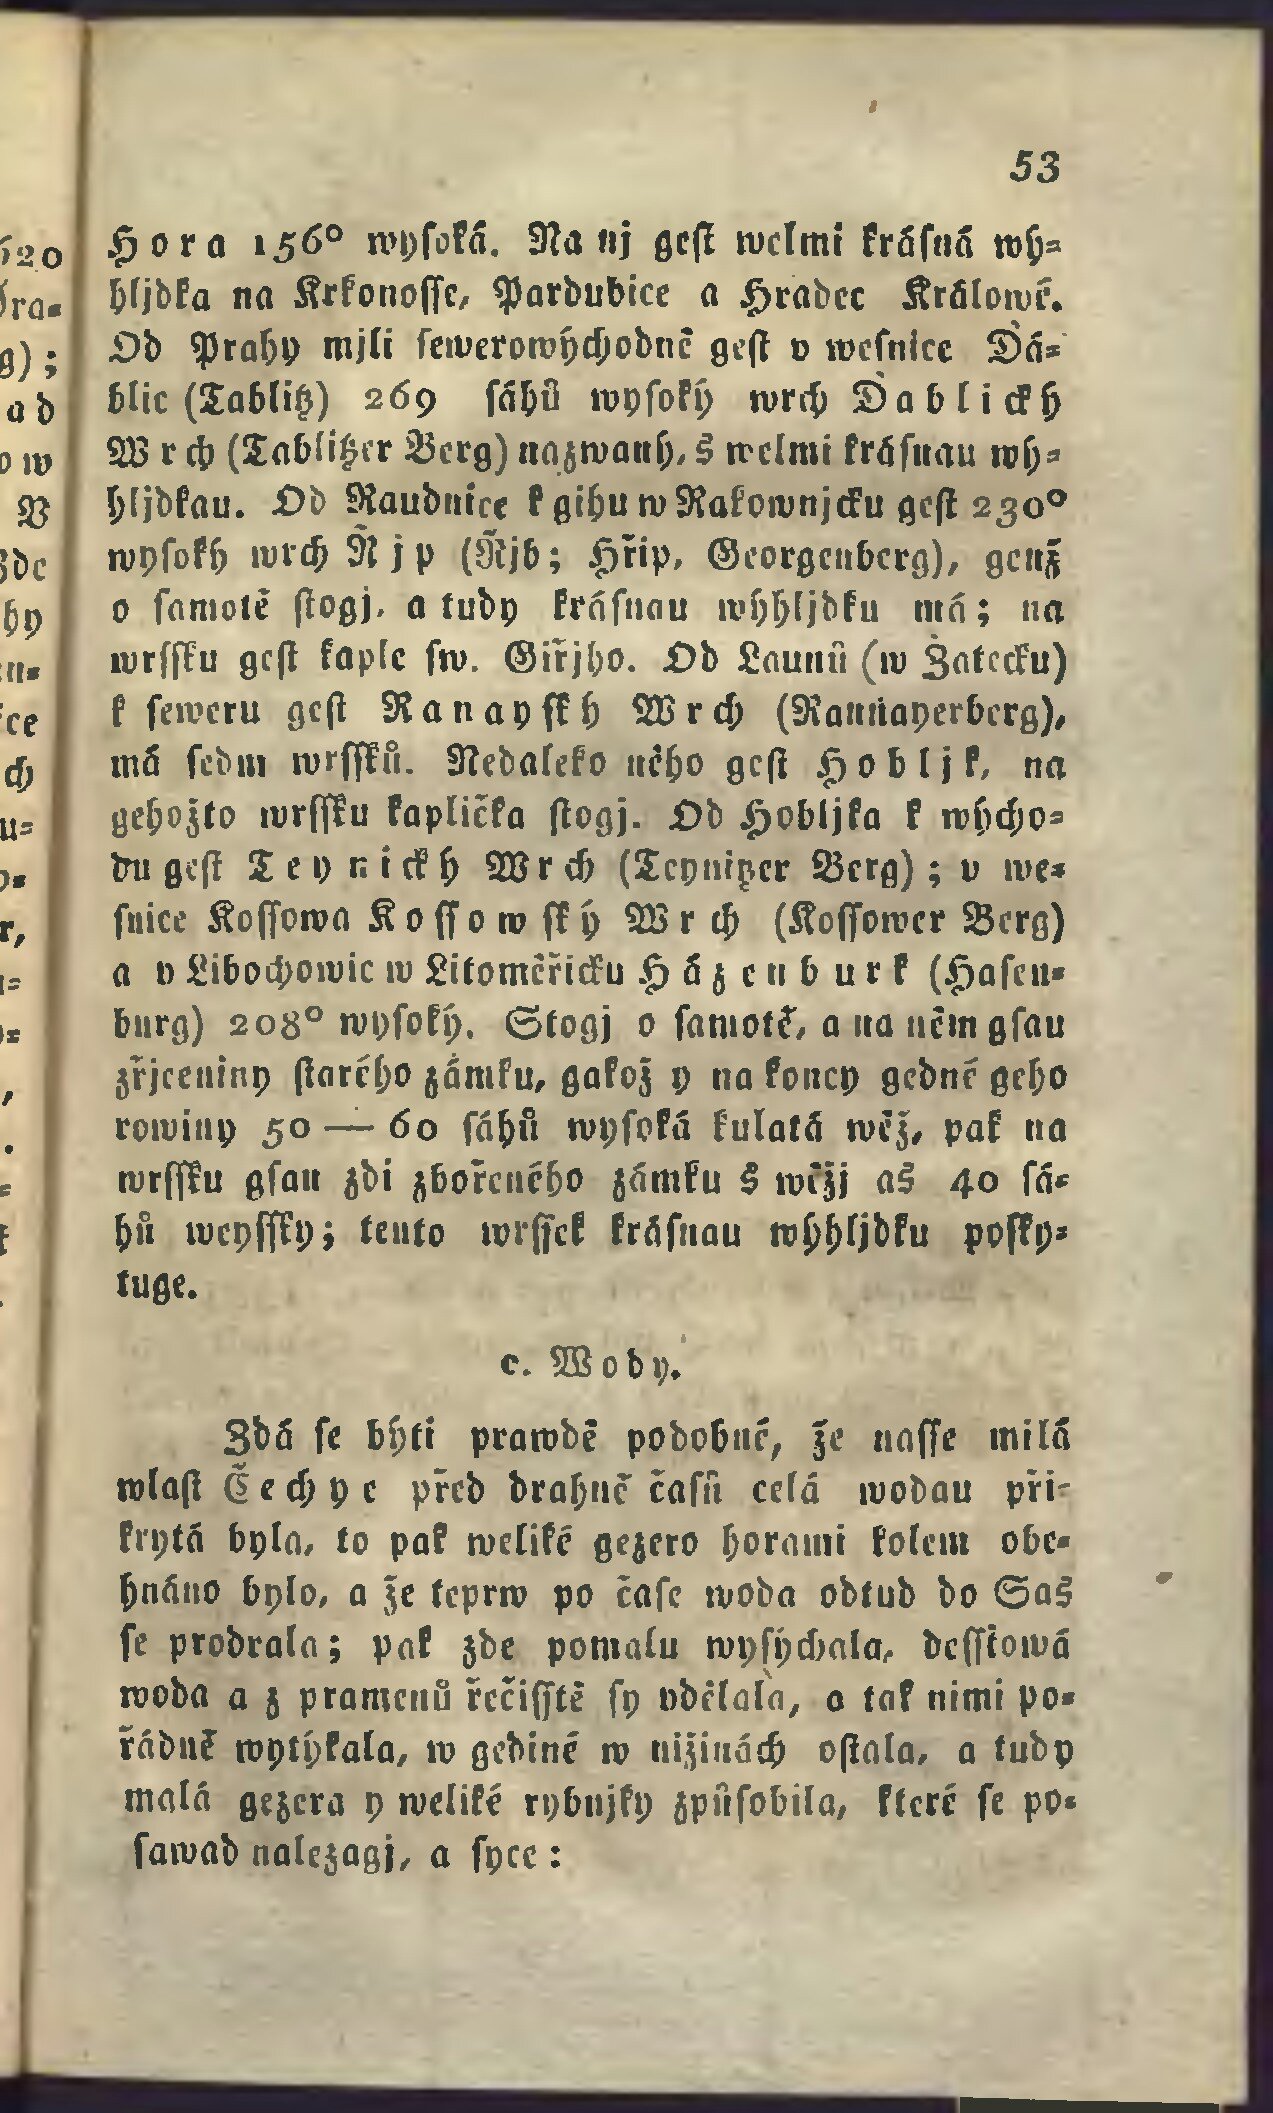 53
Hora 156° wysoká. Na nj gest welmi krásná wy=
hljdka na Krkonosse, Pardubice a Hradec Králowé.
Od Prahy mjli sewerowýchodně gest v wesnice Ďá=
blic (Tablitz) 269 sáhů wysoký wrch Ďablický
Wrch (Tablitzer Berg) nazwaný, s welmi krásnau wy=
hljdkau. Od Raudnice k gihu w Rakownjcku gest 230°
wysoký wrch Řjp (Řjb; Hřip, Georgenberg), genž
o samotě stogj, a tudy krásnau wyhljdku má; na
wrssku gest kaple sw. Giřjho. Od Launů (w Žatecku)
k seweru gest Ranayský Wrch (Rannayerberg),
má sedm wrssků. Nedaleko něho gest Hobljk, na
gehožto wrssku kaplička stogj. Od Hobljka k wýcho=
du gest Teynický Wrch (Teynitzer Berg); v we=
snice Kossowa Kossowský Wrch (Kossower Berg)
a v Libochowic w Litoměřicku Házenburk (Hasen=
burg) 208° wysoký. Stogj o samotě, a na něm gsau
zřjceniny starého zámku, gakož y na koncy gedné geho
rowiny 50 — 60 sáhů wysoká kulatá wěž, pak na
wrssku gsau zdi zbořeného zámku s wěžj as 40 sá=
hů weyssky; tento wrssek krásnau wyhljdku posky=
tuge.
c. Wody.
Zdá se býti prawdě podobné, že nasse milá
wlast Čechye před drahně časů celá wodau při=
krytá byla, to pak weliké gezero horami kolem obe=
hnáno bylo, a že teprw po čase woda odtud do Sas
se prodrala; pak zde pomalu wysýchala, desstowá
woda a z pramenů řečisstě sy vdělala, a tak nimi po=
řádně wytýkala, w gediné w nižinách ostala, a tudy
malá gezera y weliké rybnjky způsobila, které se po=
sawad nalezagj, a syce: